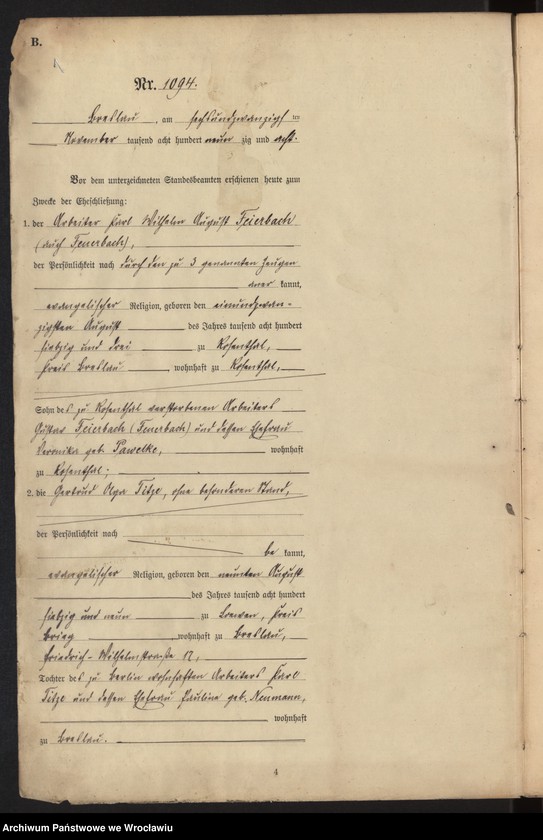 B.
Nr. 1094.
Breslau, am sechsundzwanzigsten
November tausend acht hundert neunzig und acht.
Vor dem unterzeichneten Standesbeamten erschienen heute zum
Zwecke der Eheschließung:
1. der Arbeiter Karl Wilhelm August Feierbach
(auch Feuerbach),
der Persönlichkeit nach durch den zu 3 genannten Zeugen
anerkannt,
evangelischer Religion, geboren den einundzwan-
zigsten August des Jahres tausend acht hundert
siebzig und drei zu Rosenthal,
Kreis Breslau, wohnhaft zu Rosenthal,
Sohn des zu Rosenthal verstorbenen Arbeiters
Gustav Feierbach (Feuerbach) und dessen Ehefrau
Veronika geb. Pawelke, wohnhaft
zu Rosenthal;
2. die Gertrud Olga Titze, ohne besonderen Stand,
der Persönlichkeit nach
bekannt,
evangelischer Religion, geboren den neunten August
des Jahres tausend acht hundert
siebzig und neun zu Loewen, Kreis
Brieg, wohnhaft zu Breslau,
Friedrich-Wilhelmstraße 17,
Tochter des zu Berlin wohnhaften Arbeiters Karl
Titze und dessen Ehefrau Pauline geb. Neumann,
wohnhaft
zu Breslau.
4
Archiwum Państwowe we Wrocławiu